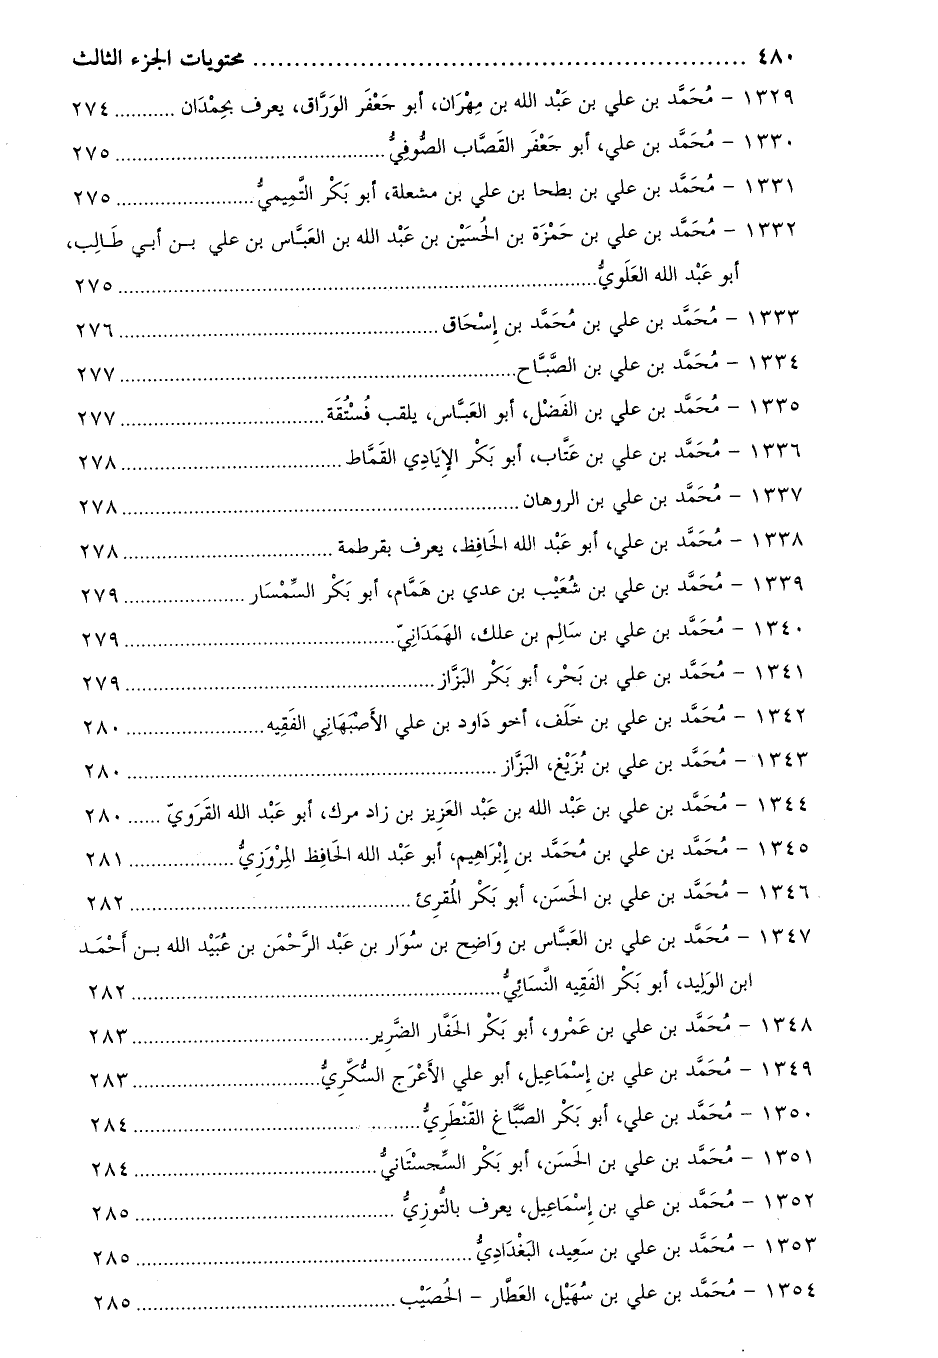 ٤٨٠ ............................................................ محتويات الجزء الثالث
١٣٢٩ - مُحَمَّد بن علي بن عَبْد الله بن مِهْرَان، أبو جَعْفَر الوَرَّاق، يعرف بحِمْدَان ........... ٢٧٤
١٣٣٠ - مُحَمَّد بن علي، أبو جَعْفَر القَصَّاب الصُّوفِيُّ.................................... ٢٧٥
١٣٣١ - مُحَمَّد بن علي بن بطحا بن علي بن مشعلة، أبو بَكْر التَّمِيميُّ.................. ٢٧٥
١٣٣٢ - مُحَمَّد بن علي بن حَمْزَة بن الحُسَيْن بن عَبْد الله بن العَبَّاس بن علي بـن أبـي طَـالِب،
أبو عَبْد الله العَلَويُّ............................................................ ٢٧٥
١٣٣٣ - مُحَمَّد بن علي بن مُحَمَّد بن إِسْحَاق ........................................ ٢٧٦
١٣٣٤ - مُحَمَّد بن علي بن الصَّبَّاح.................................................. ٢٧٧
١٣٣٥ - مُحَمَّد بن علي بن الفَضْل، أبو العَبَّاس، يلقب فُسْتُقَة.......................... ٢٧٧
١٣٣٦ - مُحَمَّد بن علي بن عَتَّاب، أبو بَكْر الإِيَادِي القَمَّاط............................ ٢٧٨
١٣٣٧ - مُحَمَّد بن علي بن الروهان.................................................. ٢٧٨
١٣٣٨ - مُحَمَّد بن علي، أبو عَبْد الله الحَافِظ، يعرف بقرطمة .......................... ٢٧٨
١٣٣٩ - مُحَمَّد بن علي بن شُعَيْب بن عدي بن هَمَّام، أبو بَكْر السِّمْسَار ............... ٢٧٩
١٣٤٠ - مُحَمَّد بن علي بن سَالِم بن علك، الهَمَدَانِيّ.................................. ٢٧٩
١٣٤١ - مُحَمَّد بن علي بن بَحْر، أبو بَكْر البَزَّاز...................................... ٢٧٩
١٣٤٢ - مُحَمَّد بن علي بن خَلَف، أخو دَاود بن علي الأَصْبَهَانِي الفَقِيه................. ٢٨٠
١٣٤٣ - مُحَمَّد بن علي بن بُزَيْغ، البَزَّاز .............................................. ٢٨٠
١٣٤٤ - مُحَمَّد بن علي بن عَبْد الله بن عَبْد العَزِيز بن زاد مرك، أبو عَبْد الله القَرَويّ ...... ٢٨٠
١٣٤٥ - مُحَمَّد بن علي بن مُحَمَّد بن إِبْرَاهِيم، أبو عَبْد الله الحَافِظ المِرْوَزِيُّ.............. ٢٨١
١٣٤٦ - مُحَمَّد بن علي بن الحَسَن، أبو بَكْر المُقرِئ .................................. ٢٨٢
١٣٤٧ - مُحَمَّد بن علي بن العَبَّاس بن وَاضِح بن سُوَار بن عَبْد الرَّحْمَن بن عُبَيْد الله بـن أَحْمَـد
ابن الوَلِيد، أبو بَكْر الفَقِيه النَّسَائِيُّ.............................................. ٢٨٢
١٣٤٨ - مُحَمَّد بن علي بن عَمْرو، أبو بَكْر الحَفَّار الضَّرِير............................. ٢٨٣
١٣٤٩ - مُحَمَّد بن علي بن إِسْمَاعِيل، أبو علي الأَعْرَج السُّكَّرِيُّ....................... ٢٨٣
١٣٥٠ - مُحَمَّد بن علي، أبو بَكْر الصَّبَّاغ القَنْطَرِيُّ.................................... ٢٨٤
١٣٥١ - مُحَمَّد بن علي بن الحَسَن، أبو بَكْر السِّجِسْتَانيُّ.............................. ٢٨٤
١٣٥٢ - مُحَمَّد بن علي بن إِسْمَاعِيل، يعرف بالتُّوزِيُّ ................................. ٢٨٥
١٣٥٣ - مُحَمَّد بن علي بن سَعِيد، البَغْدَادِيُّ........................................... ٢٨٥
١٣٥٤ - مُحَمَّد بن علي بن سُهَيْل، العَطَّار - الحُصَيْب ................................. ٢٨٥